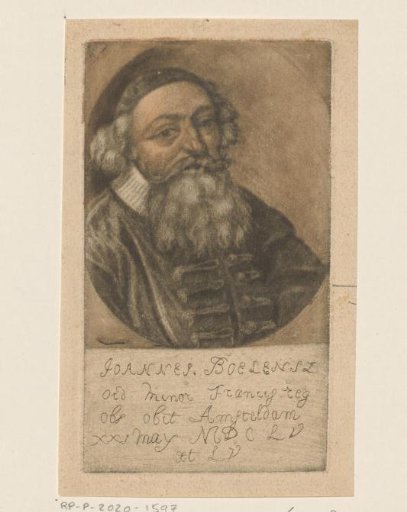 JOANNES. BOELENSZ
ord minor Francys reg
obs obit Amsteldam
XXI may MDCLV
æt LV
RP-P-2020-1597